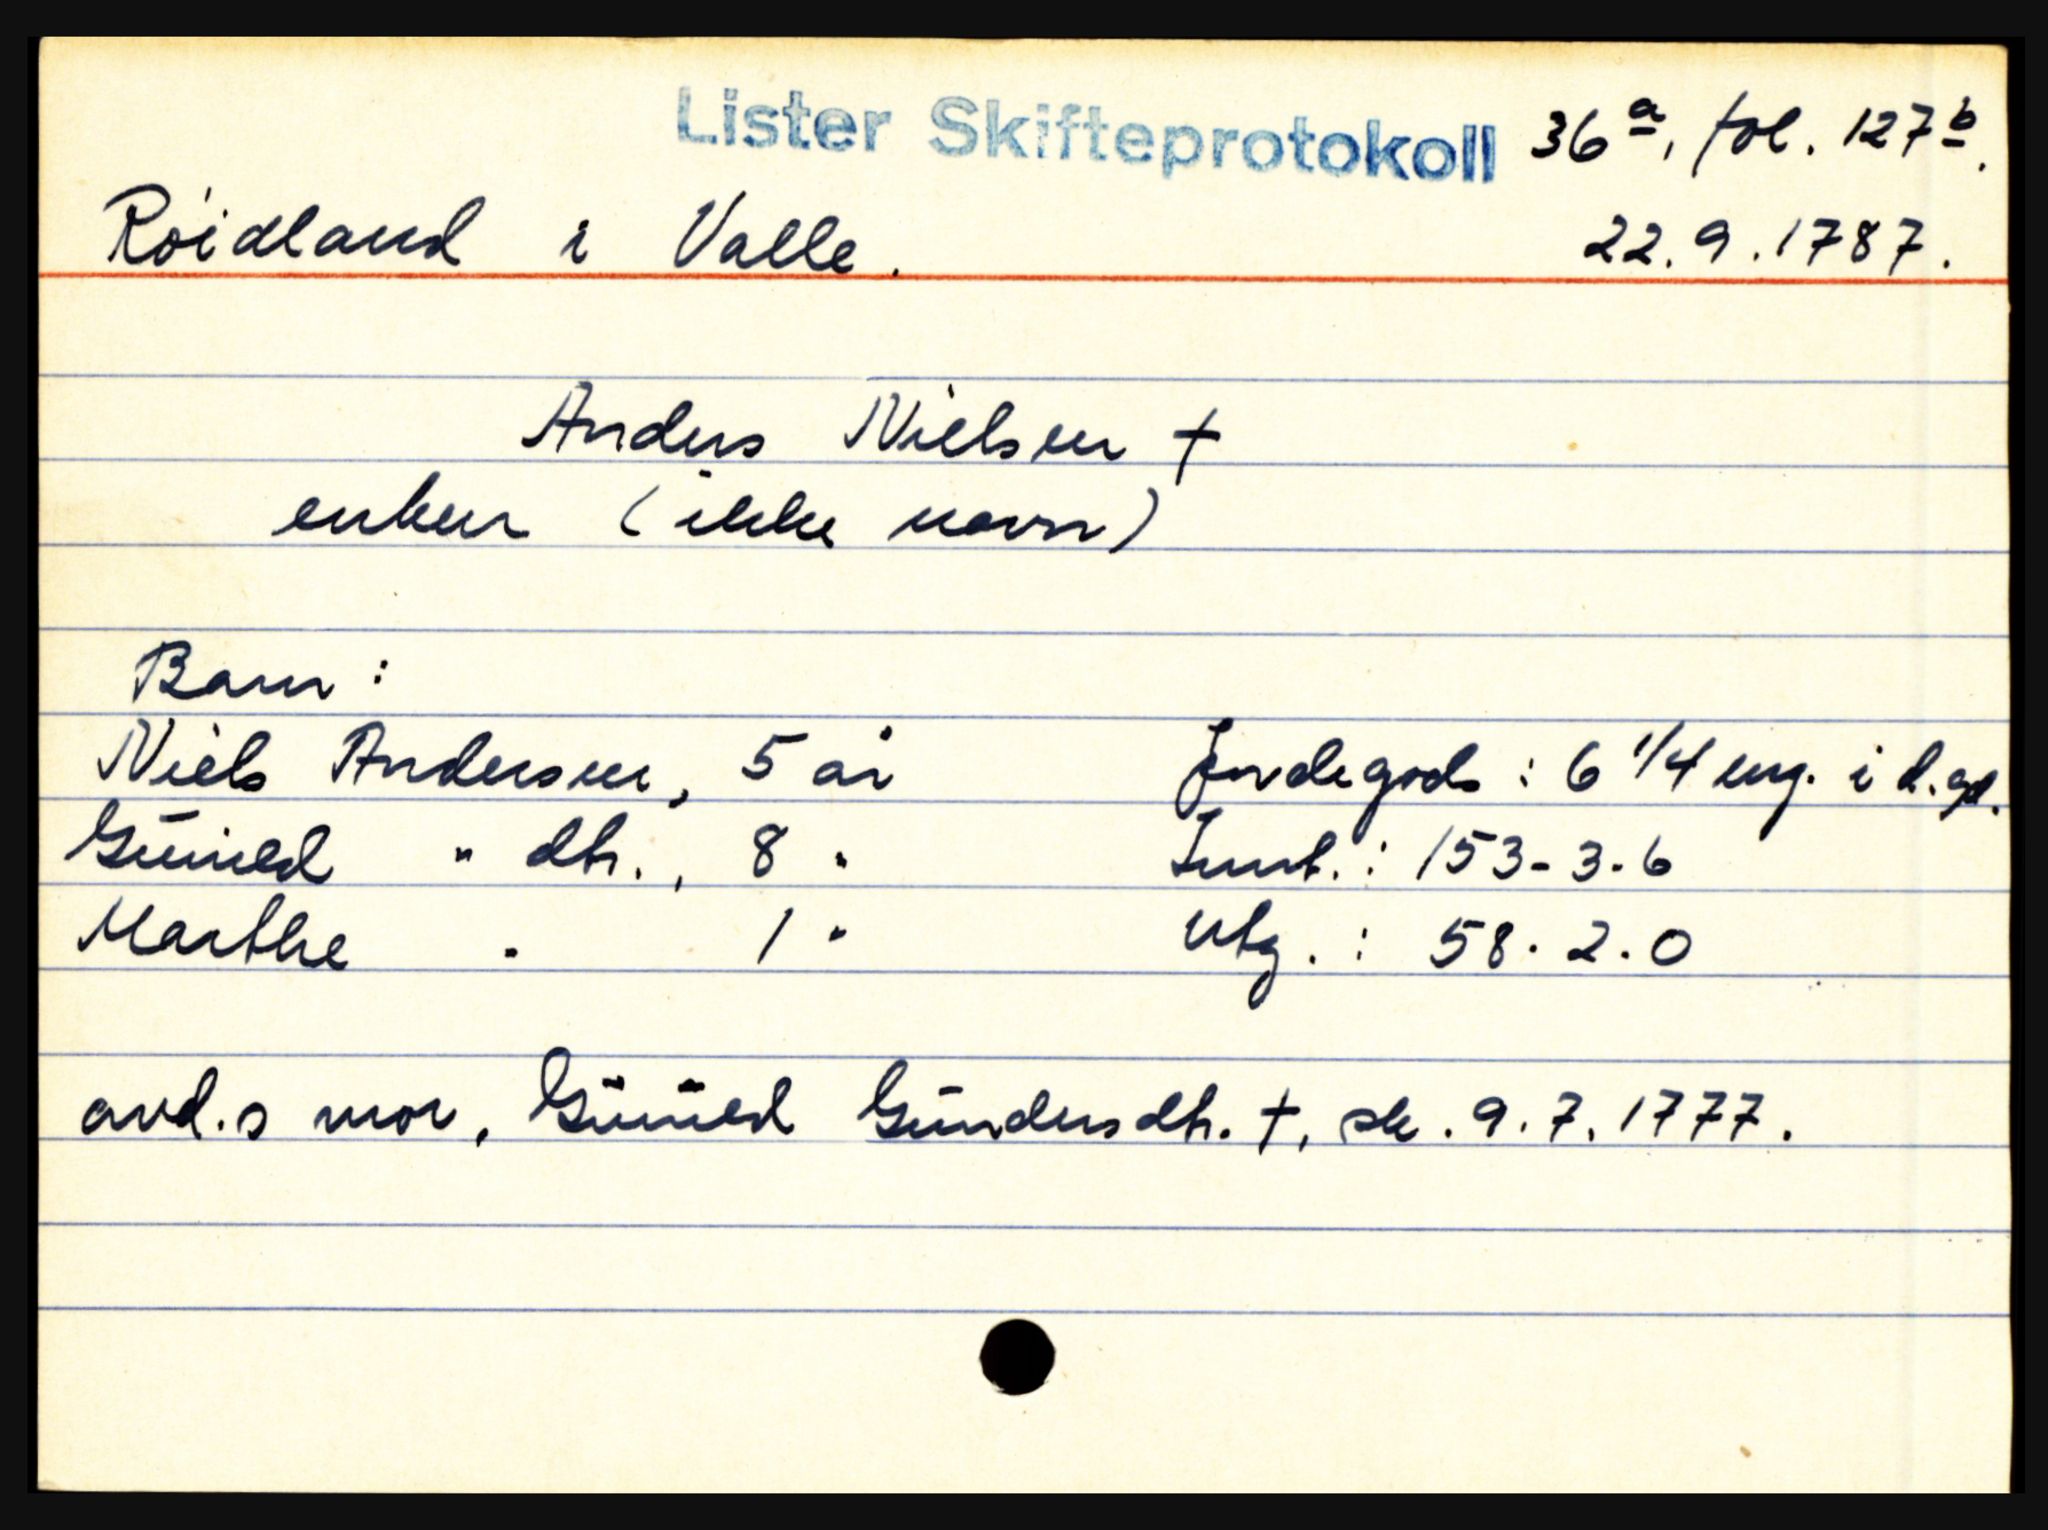 Lister Skifteprotokoll 36a, fol. 127b.
Röidland i Valle. 22.9.1787.
Anders Nielsen †
enken (ikke navn)
Barn:
Niels Andersen, 5 år Jordegods: 6 1/4 eng. i d. gd.
Gunild " dtr., 8 " Innt.: 153-3-6
Marthe " 1 " Utg.: 58.2.0
avd.s mor, Gunild Gundersdtr. †, sk. 9.7.1777.